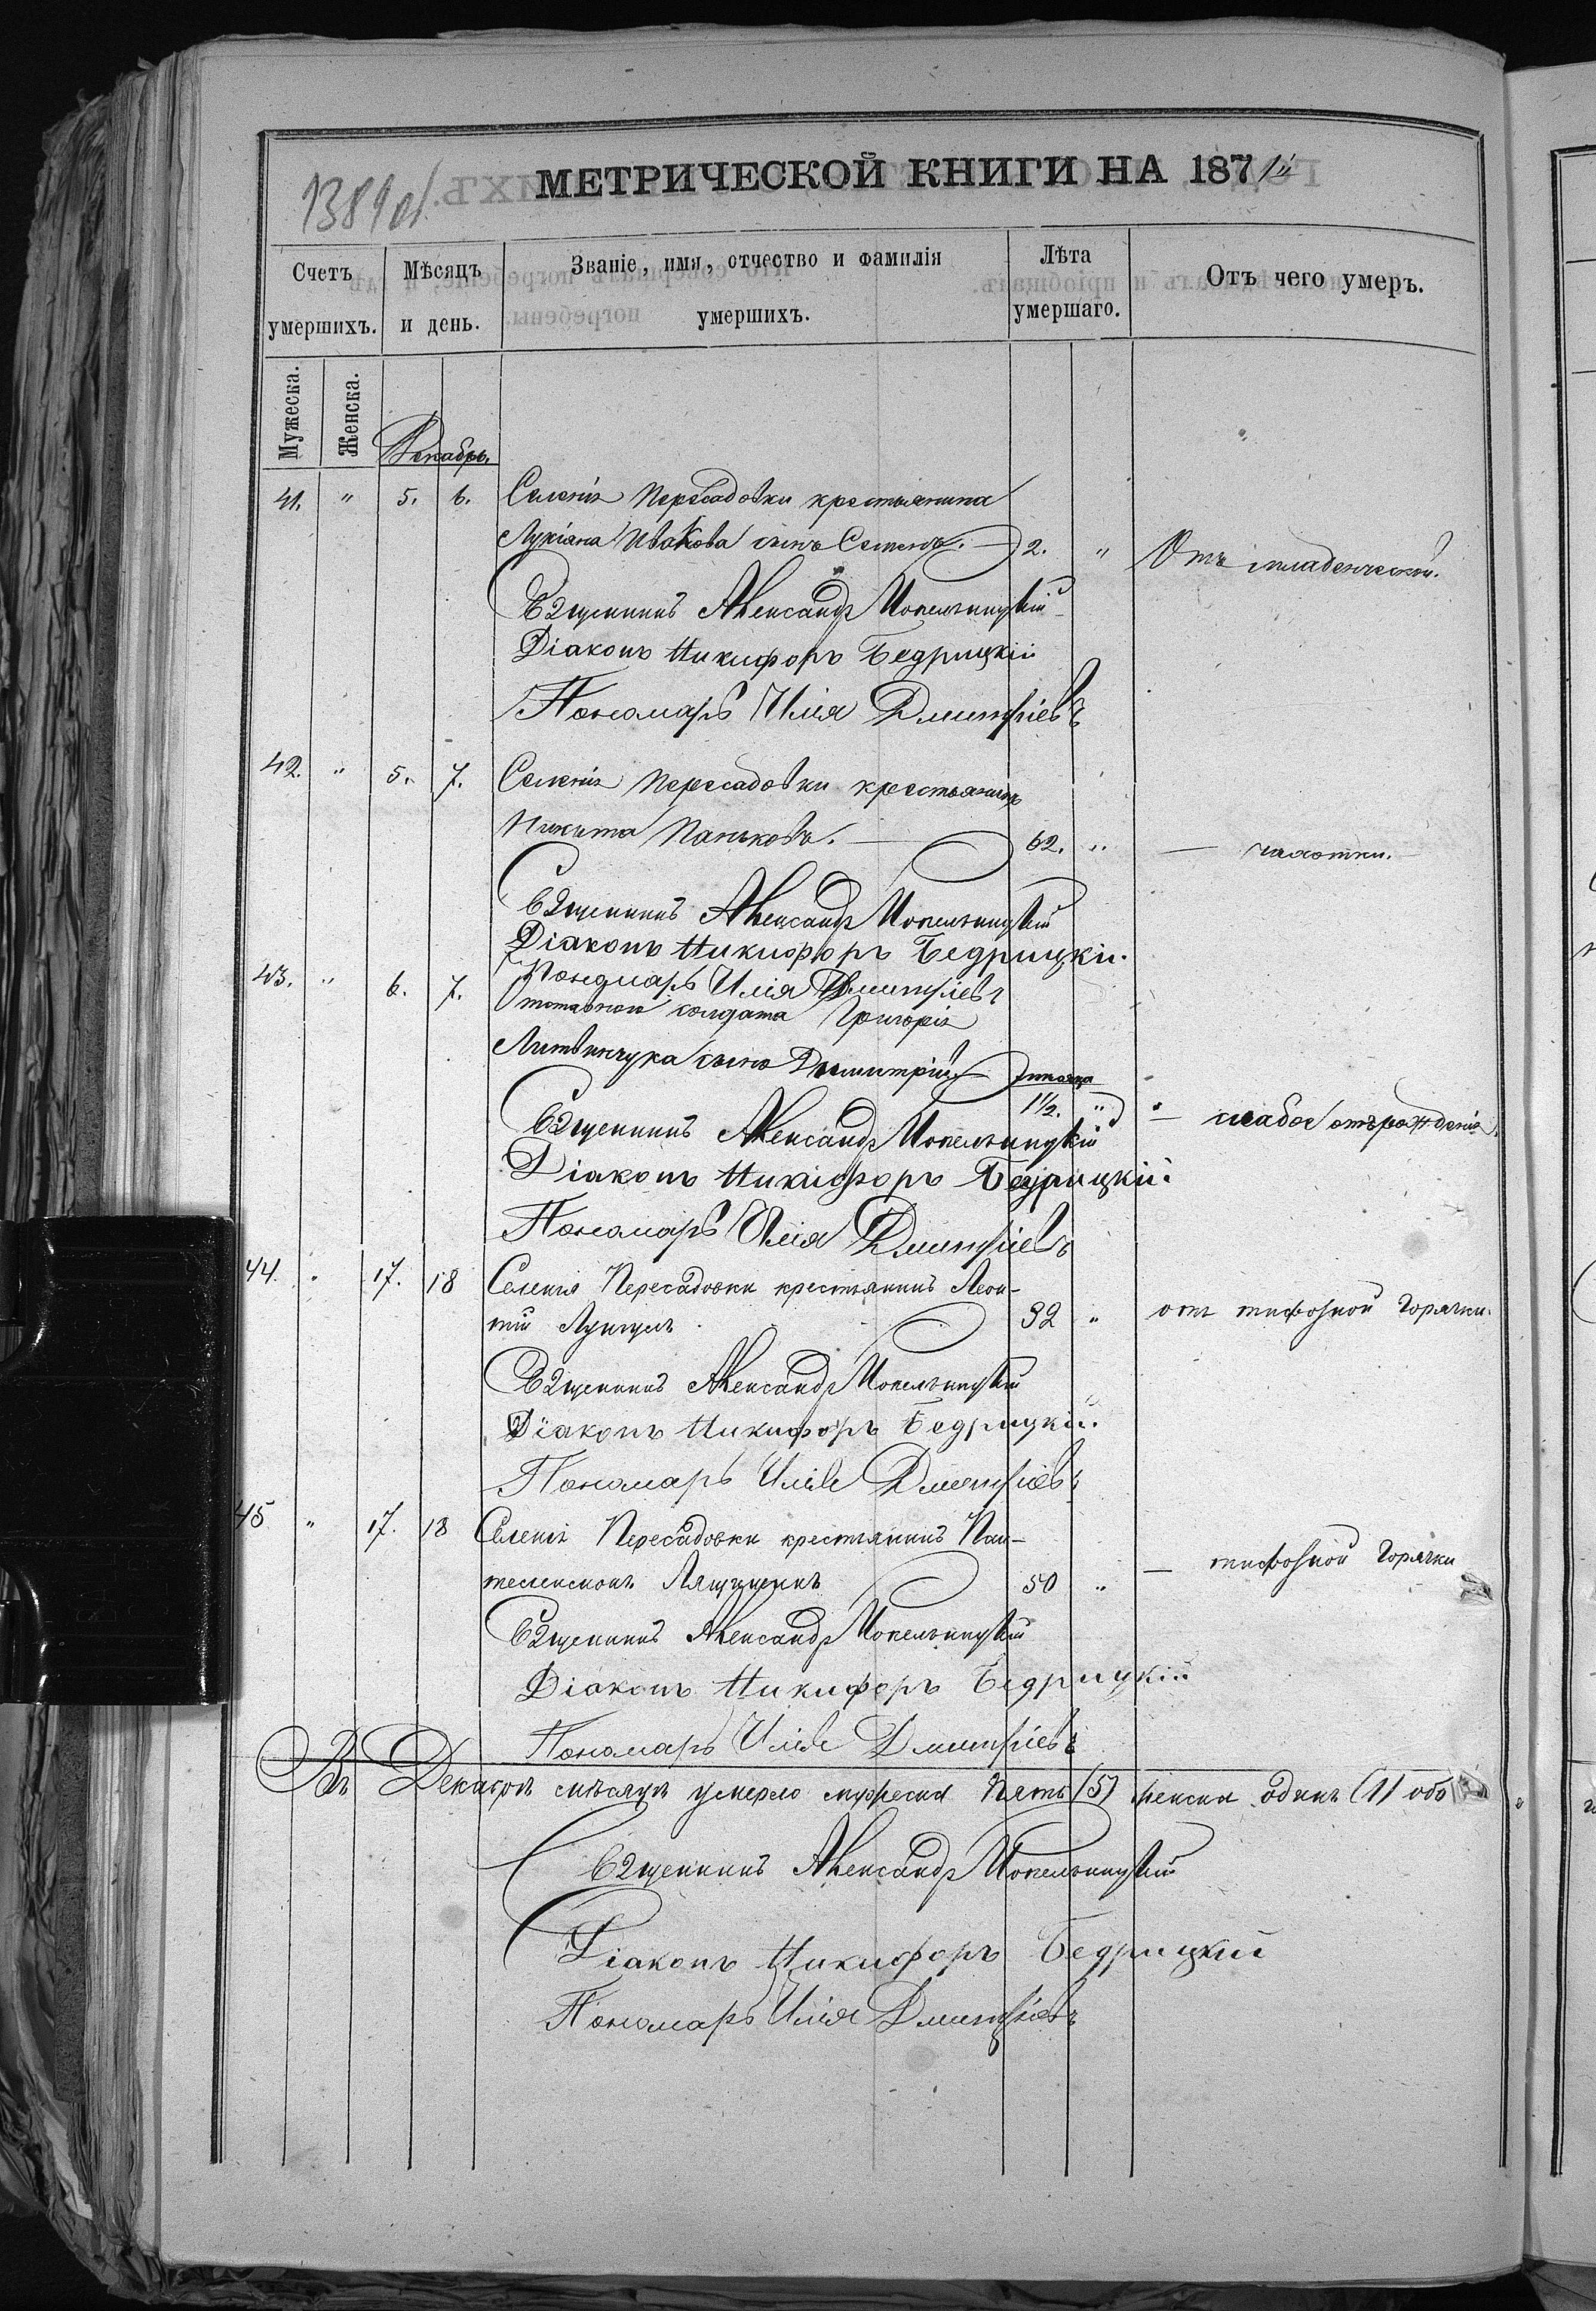 1389 об.
МЕТРИЧЕСКОЙ КНИГИ НА 1871й
Счетъ умершихъ.
Мѣсяцъ и день.
Званіе, имя, отчество и фамилія умершихъ.
Лѣта умершаго.
Отъ чего умеръ.
Мужеска.
Женска.
Декабрь.
41. " 5. 6. Селенія Пересадовки крестьянина
Лукіана Ивакова сынъ Семенъ. 2. " Отъ младенческой.
Священникъ Александръ
Діаконъ Никифоръ Бедрицкій
Пономарь Илія Дмитріевъ
42. " 5. 7. Селенія Пересадовки крестьянинъ
Никита Паньковъ. 62. " — чахотки.
Священникъ Александръ
Діаконъ Никифоръ Бедрицкій.
Пономарь Илія Дмитріевъ
43. " 6. 7. солдата Григорія
Литвинчука сынъ Димитрій
1½. " — слабое отъ рожденія.
Священникъ Александръ
Діаконъ Никифоръ Бедрицкій.
Пономарь Илія Дмитріевъ
44. " 17. 18 Селенія Пересадовки крестьянинъ Леон-
тій 32 " отъ тифозной горячки.
Священникъ Александръ
Діаконъ Никифоръ Бедрицкій.
Пономарь Илія Дмитріевъ
45 " 17. 18 Селенія Пересадовки крестьянинъ Пан-
телеимонъ 50 " — тифозной горячки
Священникъ Александръ
Діаконъ Никифоръ Бедрицкій
Пономарь Илія Дмитріевъ
Въ Декабрѣ мѣсяцѣ умерло мужеска пять (5) женска одинъ (1) обо
Священникъ Александръ
Діаконъ Никифоръ Бедрицкій
Пономарь Илія Дмитріевъ